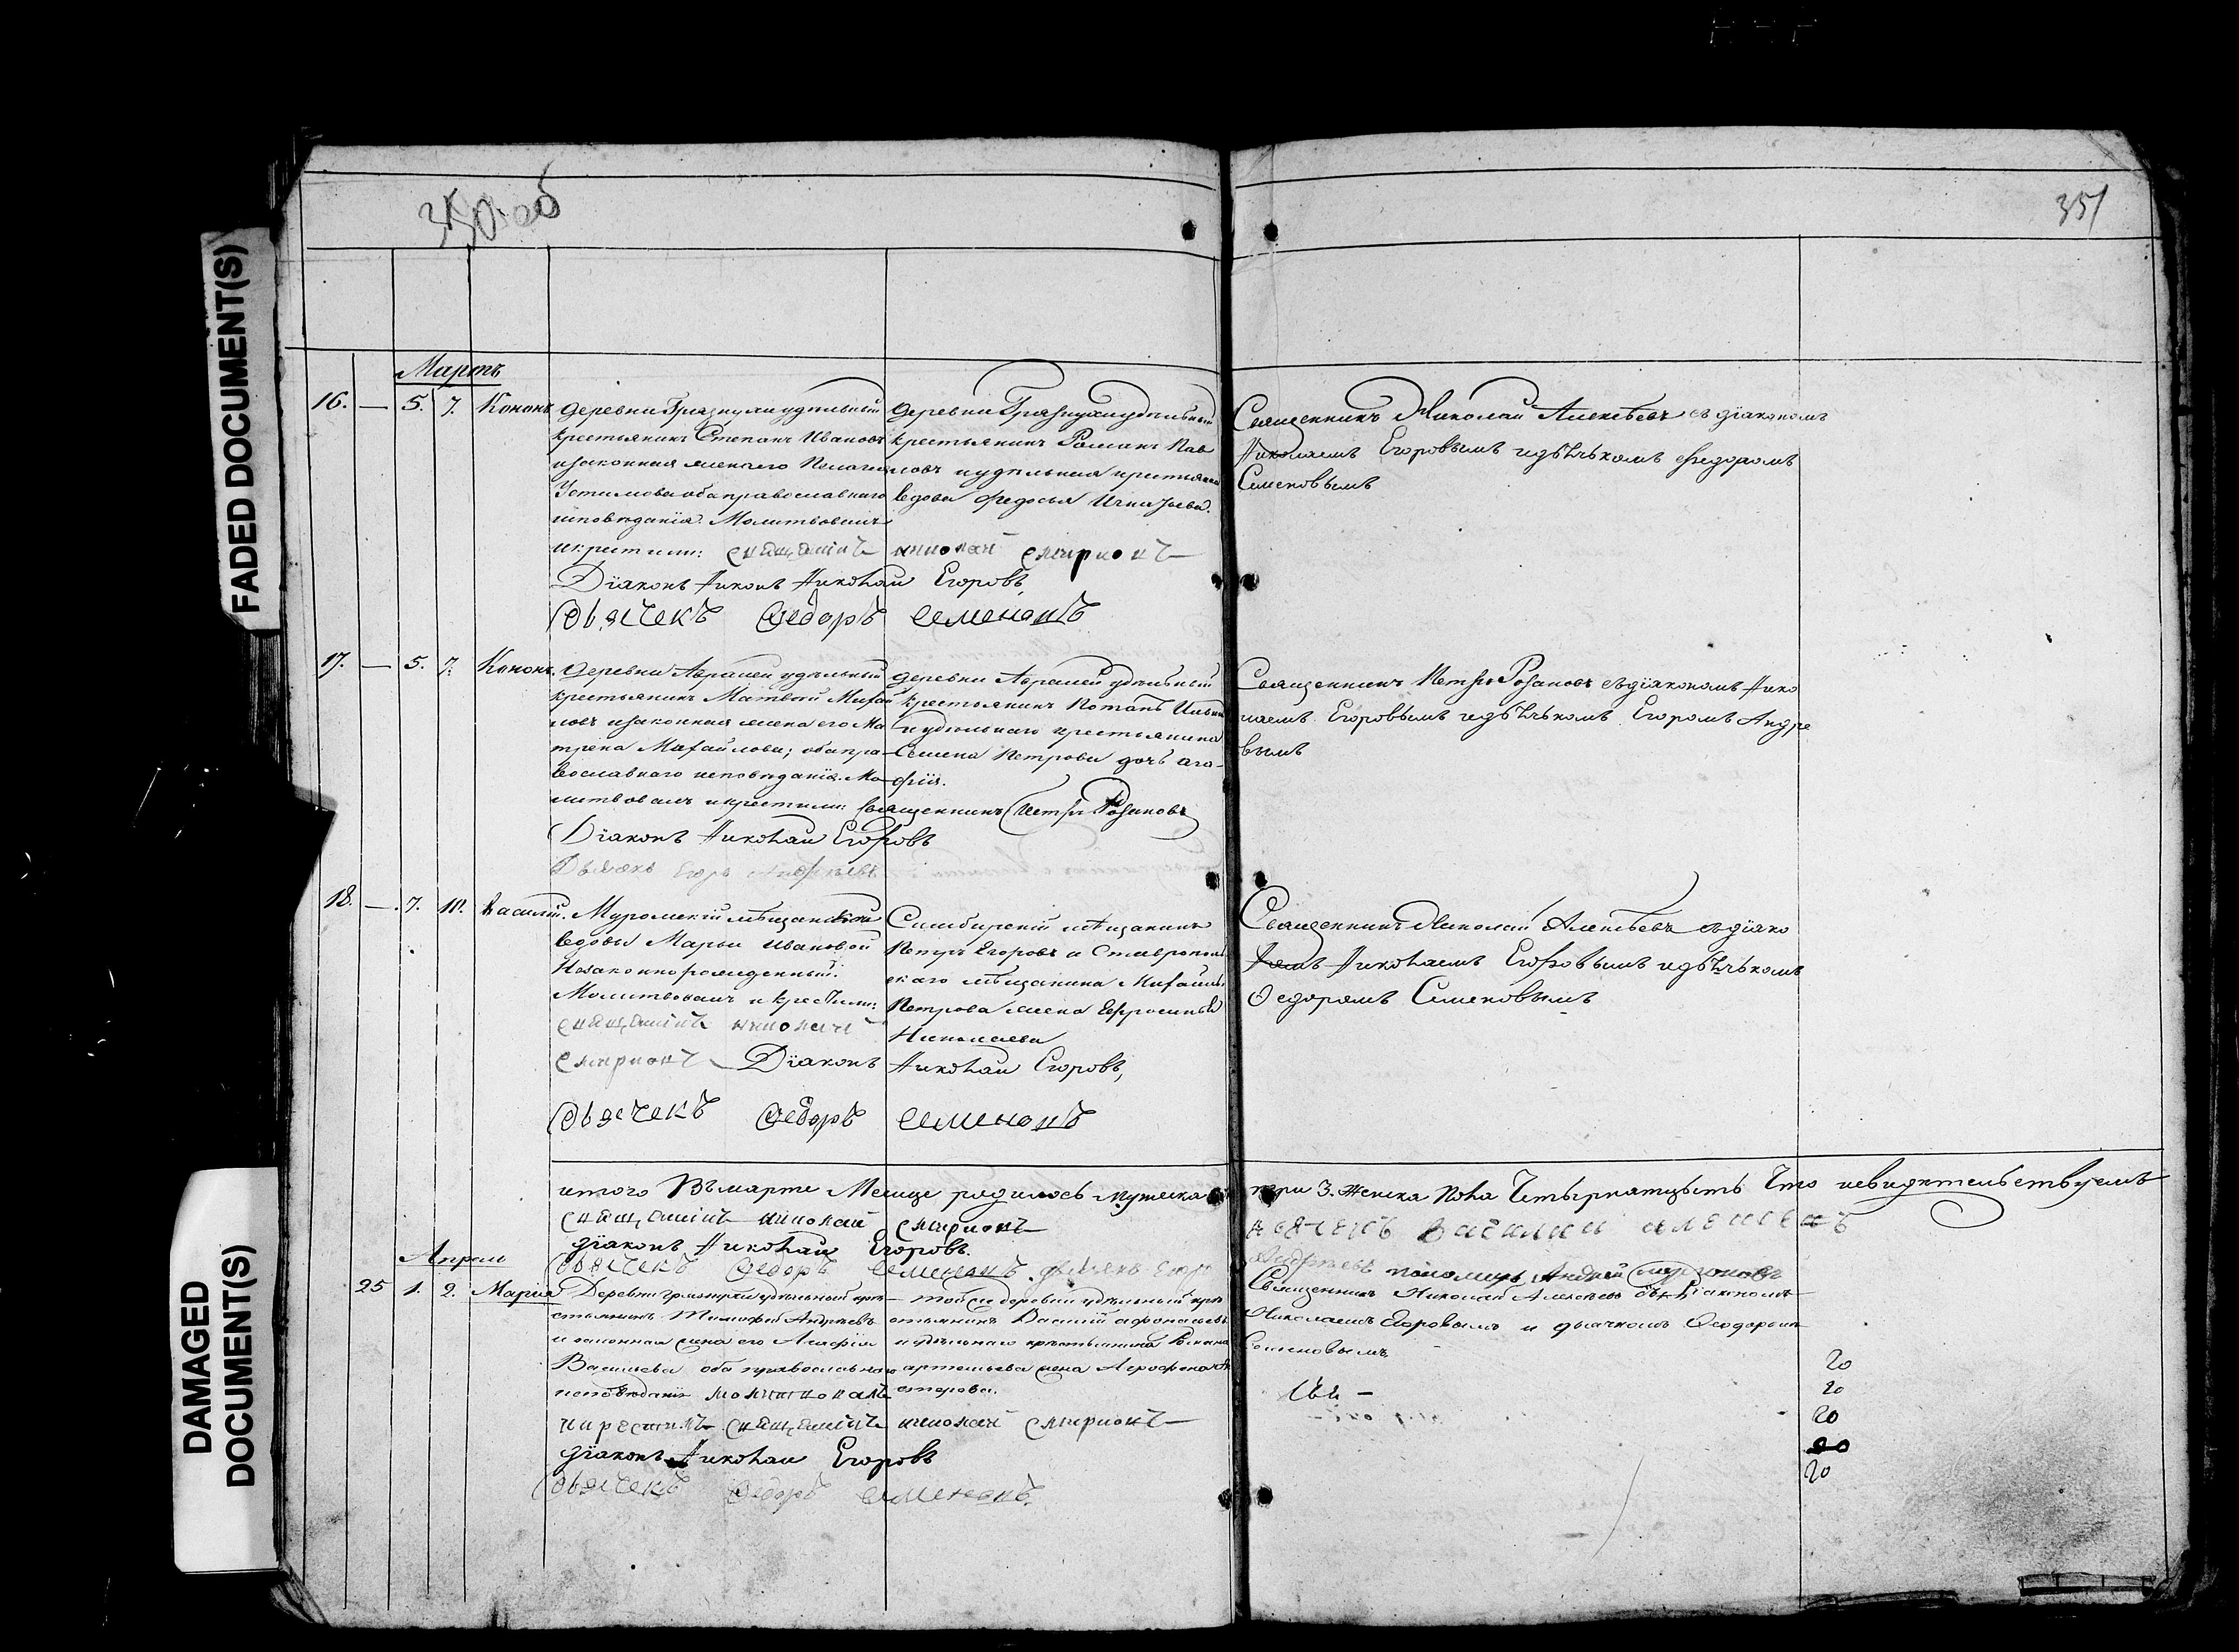 FADED DOCUMENT(S)
DAMAGED DOCUMENT(S)
351
Мартъ
16. — 5. 7. Кононъ
деревни удѣльный
крестьянинъ Степанъ Ивановъ
изаконная жена его Пелагея
Устимова оба православнаго
исповѣданія. Молитвовалъ
икрестили: священникъ николай смирновъ
Діаконъ Николай Егоровъ,
Дьячекъ Федоръ Семеновъ
деревни удѣльный
крестьянинъ Романъ Пав
ловъ иудѣльная
вдова Федосья Игнатьева.
Священникъ Николай Алексѣевъ съ діакономъ
Николаемъ Егоровымъ идьячькомъ Федоромъ
Семеновымъ
17. — 5. 7. Кононъ.
деревни Авралей удѣльный
крестьянинъ Матвей Михай
ловъ изаконная жена его Ма
трена Михайлова; оба пра
вославнаго исповѣданія. Мо
литвовалъ икрестили: священникъ Петръ Розановъ
Діаконъ Николай Егоровъ
Дьячекъ Егоръ Андреевъ
деревни Авралей удѣльный
крестьянинъ Потапъ
иудѣльнаго крестьянина
Семена Петрова дочь Ага-
фія.
Священникъ Петръ Розановъ съдіакономъ Нико
лаемъ Егоровымъ идьячькомъ Егоромъ Андре
вымъ
18. — 7. 10. Василій.
Муромской мѣщанской
вдовы Марьи Ивановой
Незаконнорожденный.
Молитвовалъ икрестили:
священникъ николай
смирновъ Діаконъ Николай Егоровъ,
Дьячекъ Федоръ Семеновъ
Симбирскій мѣщанинъ
Петръ Егоровъ и Ставрополь
скаго мѣщанина Михайлы
Петрова жена Ефросинья
Николаева
Священникъ Николай Алексѣевъ съдіако
номъ Николаемъ Егоровымъ идьячькомъ
Федоромъ Семеновымъ
итого Въ марте Месяце родилось мужеска три 3. Женска пола Четырнатцеть Что
священникъ николай смирновъ
діаконъ Николай Егоровъ.
Дьячекъ Федоръ Семеновъ. Дьячекъ Егоръ
Андреевъ пономарь Андрей
Апрель
25 1. 2. Марія
Деревни удѣльный кре
стьянинъ Тимофей Андреевъ
и законная жена его
Васильева оба православнаго
исповѣданія молитвовалъ
икрестилъ священникъ николай смирновъ
діаконъ Николай Егоровъ
Дьячекъ Федоръ Семеновъ.
тойже деревни удѣльный кре
стьянинъ Василій Афонасьевъ
иудѣльнаго крестьянина Романа
жена
Священникъ Николай Алексѣевъ съ Діакономъ
Николаемъ Егоровымъ и дьячкомъ Феодоромъ
Семеновымъ
20
20
20
20
20